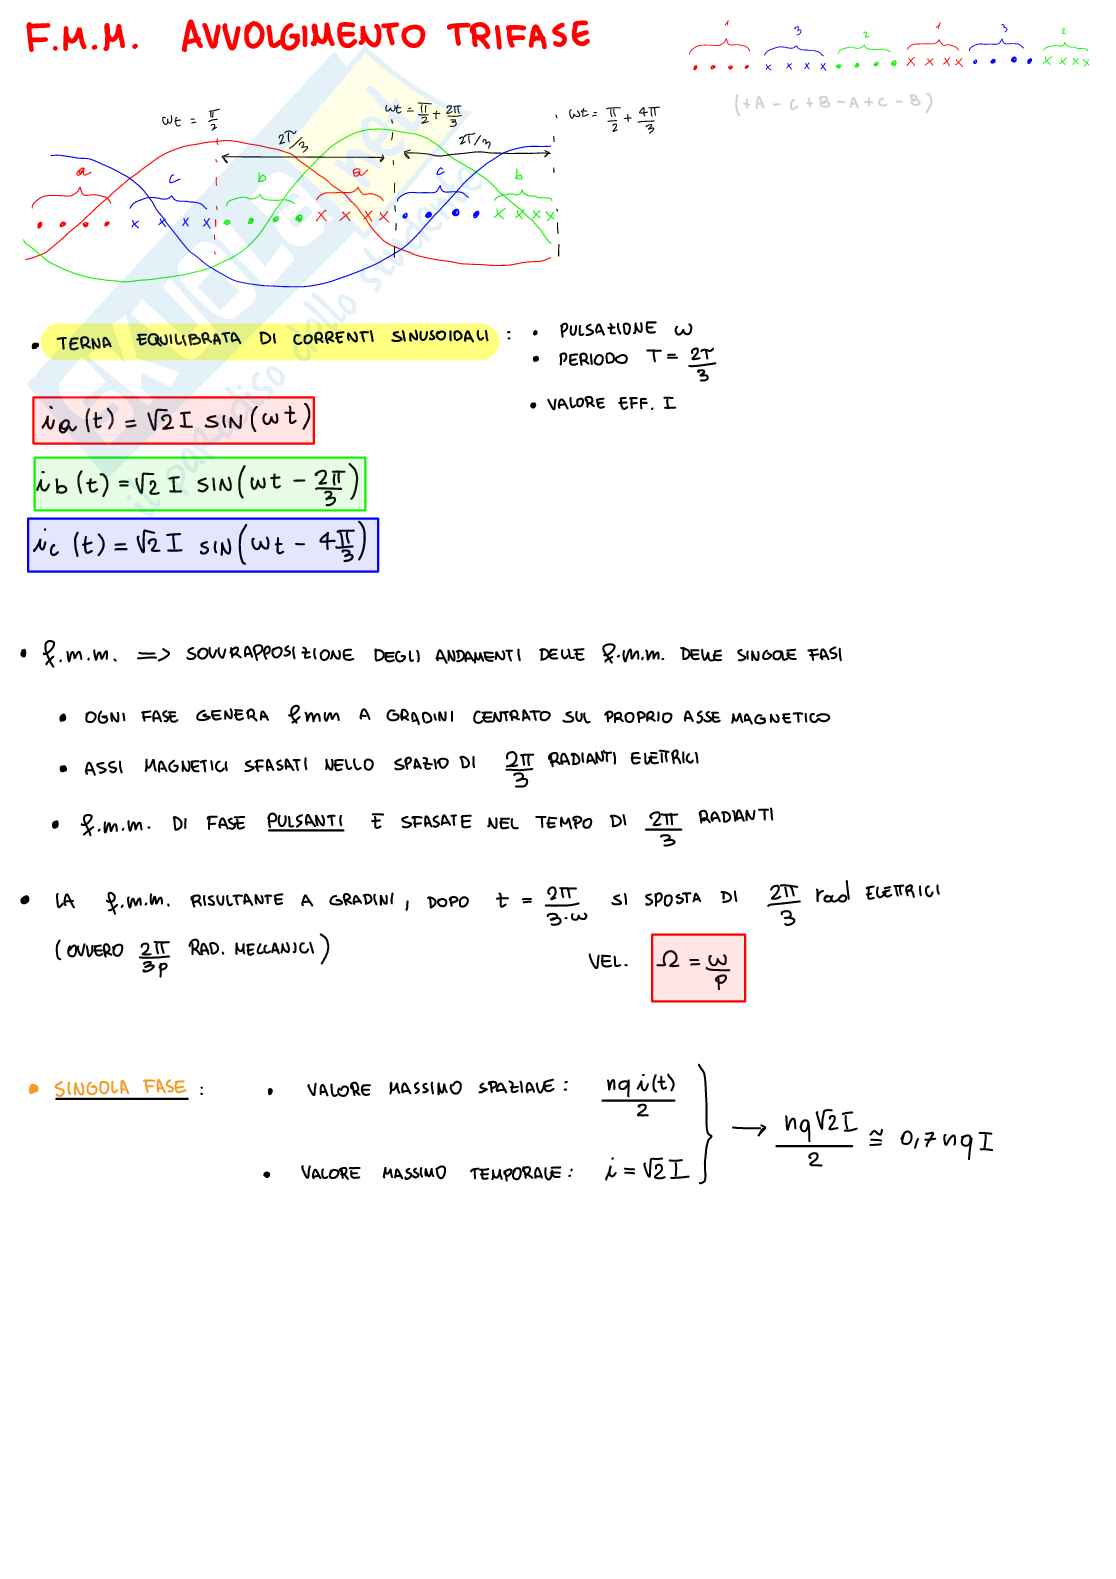 F.M.M. AVVOLGIMENTO TRIFASE
1 3 2 1 3 2
• • • • x x x x • • • • x x x x • • • • x x x x
(+A - C + B - A + C - B)
ωt = π/2
ωt = π/2 + 2π/3
ωt = π/2 + 4π/3
2π/3 2π/3
a c b a c b
• • • • x x x x • • • • x x x x • • • • x x x x
• TERNA EQUILIBRATA DI CORRENTI SINUSOIDALI :
• PULSAZIONE ω
• PERIODO T = 2π/3
• VALORE EFF. I
ia(t) = √2 I SIN(ωt)
ib(t) = √2 I SIN(ωt - 2π/3)
ic(t) = √2 I SIN(ωt - 4π/3)
• f.m.m. => SOVVRAPPOSIZIONE DEGLI ANDAMENTI DELLE f.m.m. DELLE SINGOLE FASI
• OGNI FASE GENERA fmm A GRADINI CENTRATO SUL PROPRIO ASSE MAGNETICO
• ASSI MAGNETICI SFASATI NELLO SPAZIO DI 2π/3 RADIANTI ELETTRICI
• f.m.m. DI FASE PULSANTI E SFASATE NEL TEMPO DI 2π/3 RADIANTI
• LA f.m.m. RISULTANTE A GRADINI, DOPO t = 2π/3·ω SI SPOSTA DI 2π/3 rad ELETTRICI
(OVVERO 2π/3p RAD. MECCANICI)
VEL. Ω = ω/p
• SINGOLA FASE :
• VALORE MASSIMO SPAZIALE : nq i(t)/2
• VALORE MASSIMO TEMPORALE : i = √2 I
→ nq√2 I/2 ≅ 0,7 nq I
SKUOLA.net
il paradiso dello studente